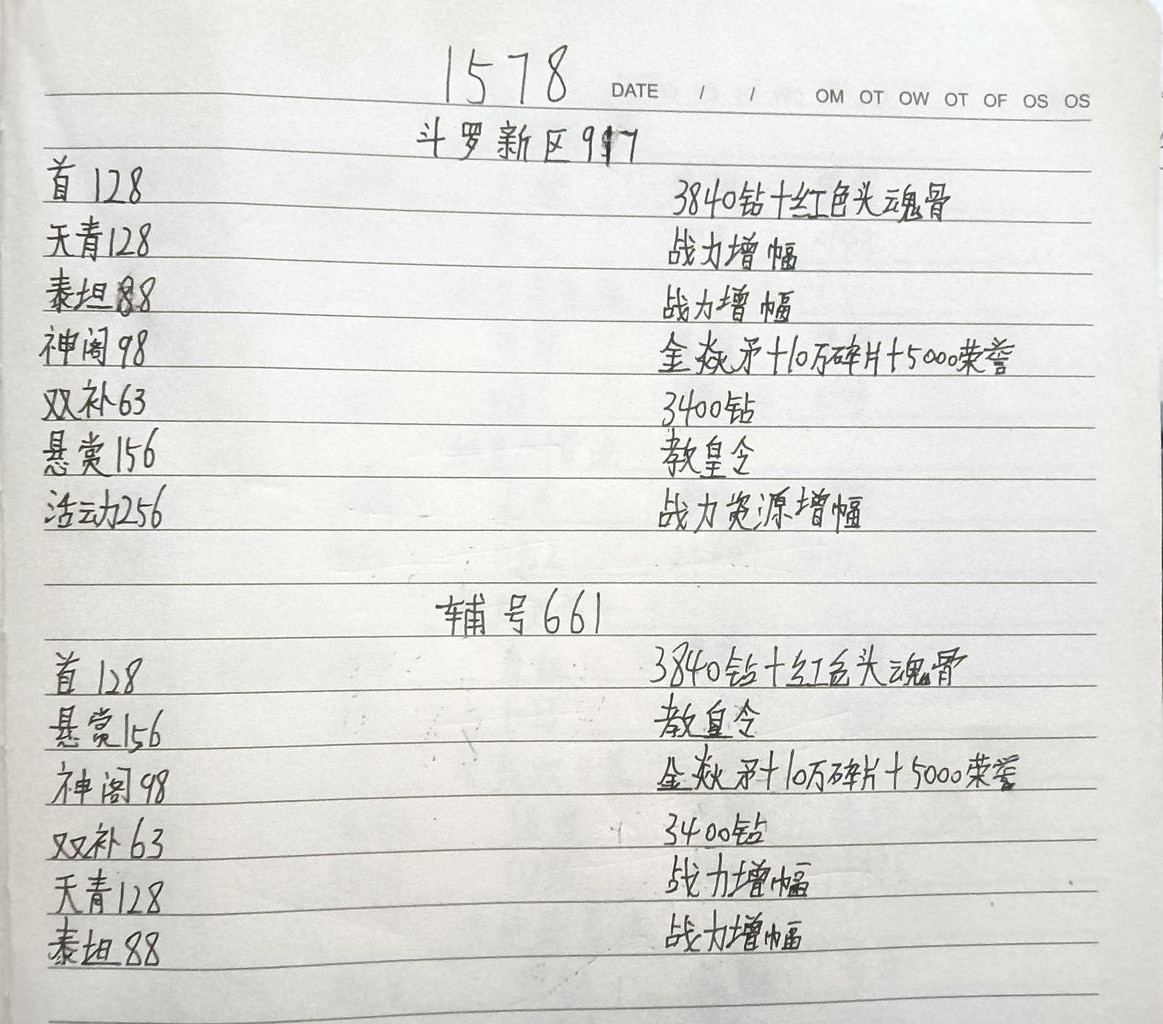 1578 DATE / / OM OT OW OT OF OS OS
斗罗新区917
首128 3840钻+红色头魂骨
天青128 战力增幅
泰坦88 战力增幅
神阁98 金焱矛+10万碎片+5000荣誉
双补63 3400钻
悬赏156 教皇令
活动256 战力资源增幅
辅号661
首128 3840钻+红色头魂骨
悬赏156 教皇令
神阁98 金焱矛+10万碎片+5000荣誉
双补63 3400钻
天青128 战力增幅
泰坦88 战力增幅